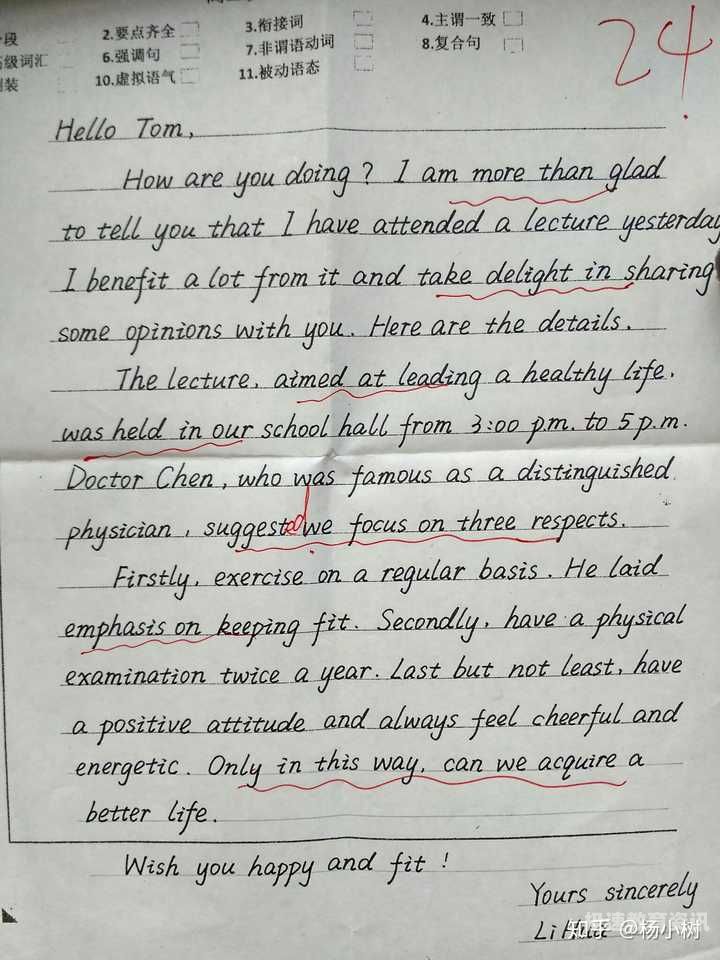 2.要点齐全
3.衔接词
4.主谓一致
级词汇
6.强调句
7.非谓语动词
8.复合句
装
10.虚拟语气
11.被动语态
24
Hello Tom,
How are you doing? I am more than glad
to tell you that I have attended a lecture yesterday
I benefit a lot from it and take delight in sharing
some opinions with you. Here are the details.
The lecture, aimed at leading a healthy life,
was held in our school hall from 3:00 p.m. to 5 p.m.
Doctor Chen, who was famous as a distinguished
physician, suggested we focus on three respects.
Firstly, exercise on a regular basis. He laid
emphasis on keeping fit. Secondly, have a physical
examination twice a year. Last but not least, have
a positive attitude and always feel cheerful and
energetic. Only in this way, can we acquire a
better life.
Wish you happy and fit!
Yours sincerely
Li Hua
知乎 @杨小树